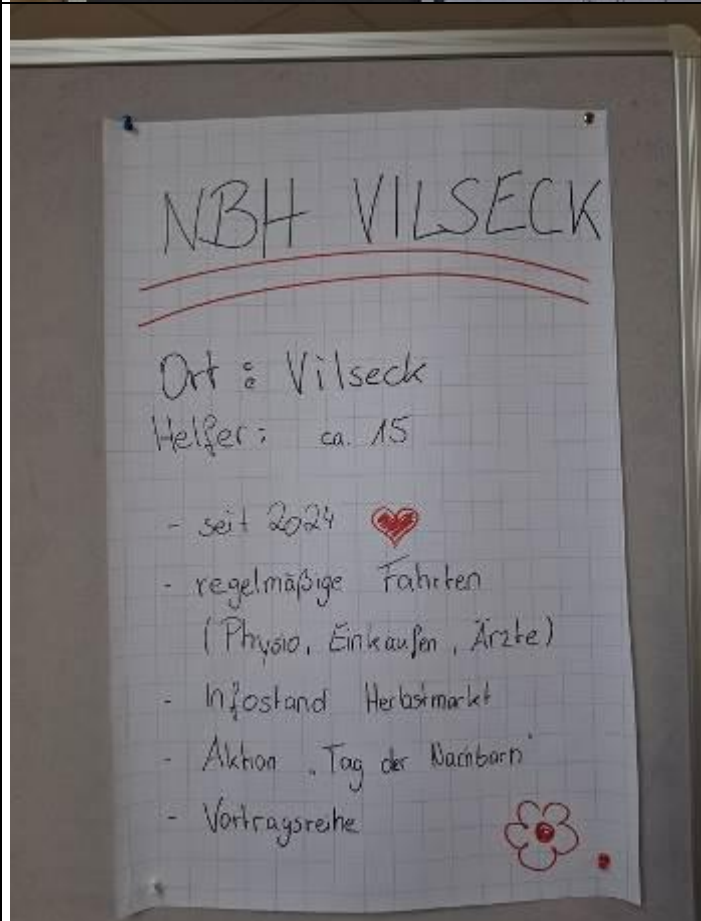 NBH VILSECK
Ort: Vilseck
Helfer: ca. 15
- seit 2024
- regelmäßige Fahrten
(Physio, Einkaufen, Ärzte)
- Infostand Herbstmarkt
- Aktion „Tag der Nachbarn"
- Vortragsreihe